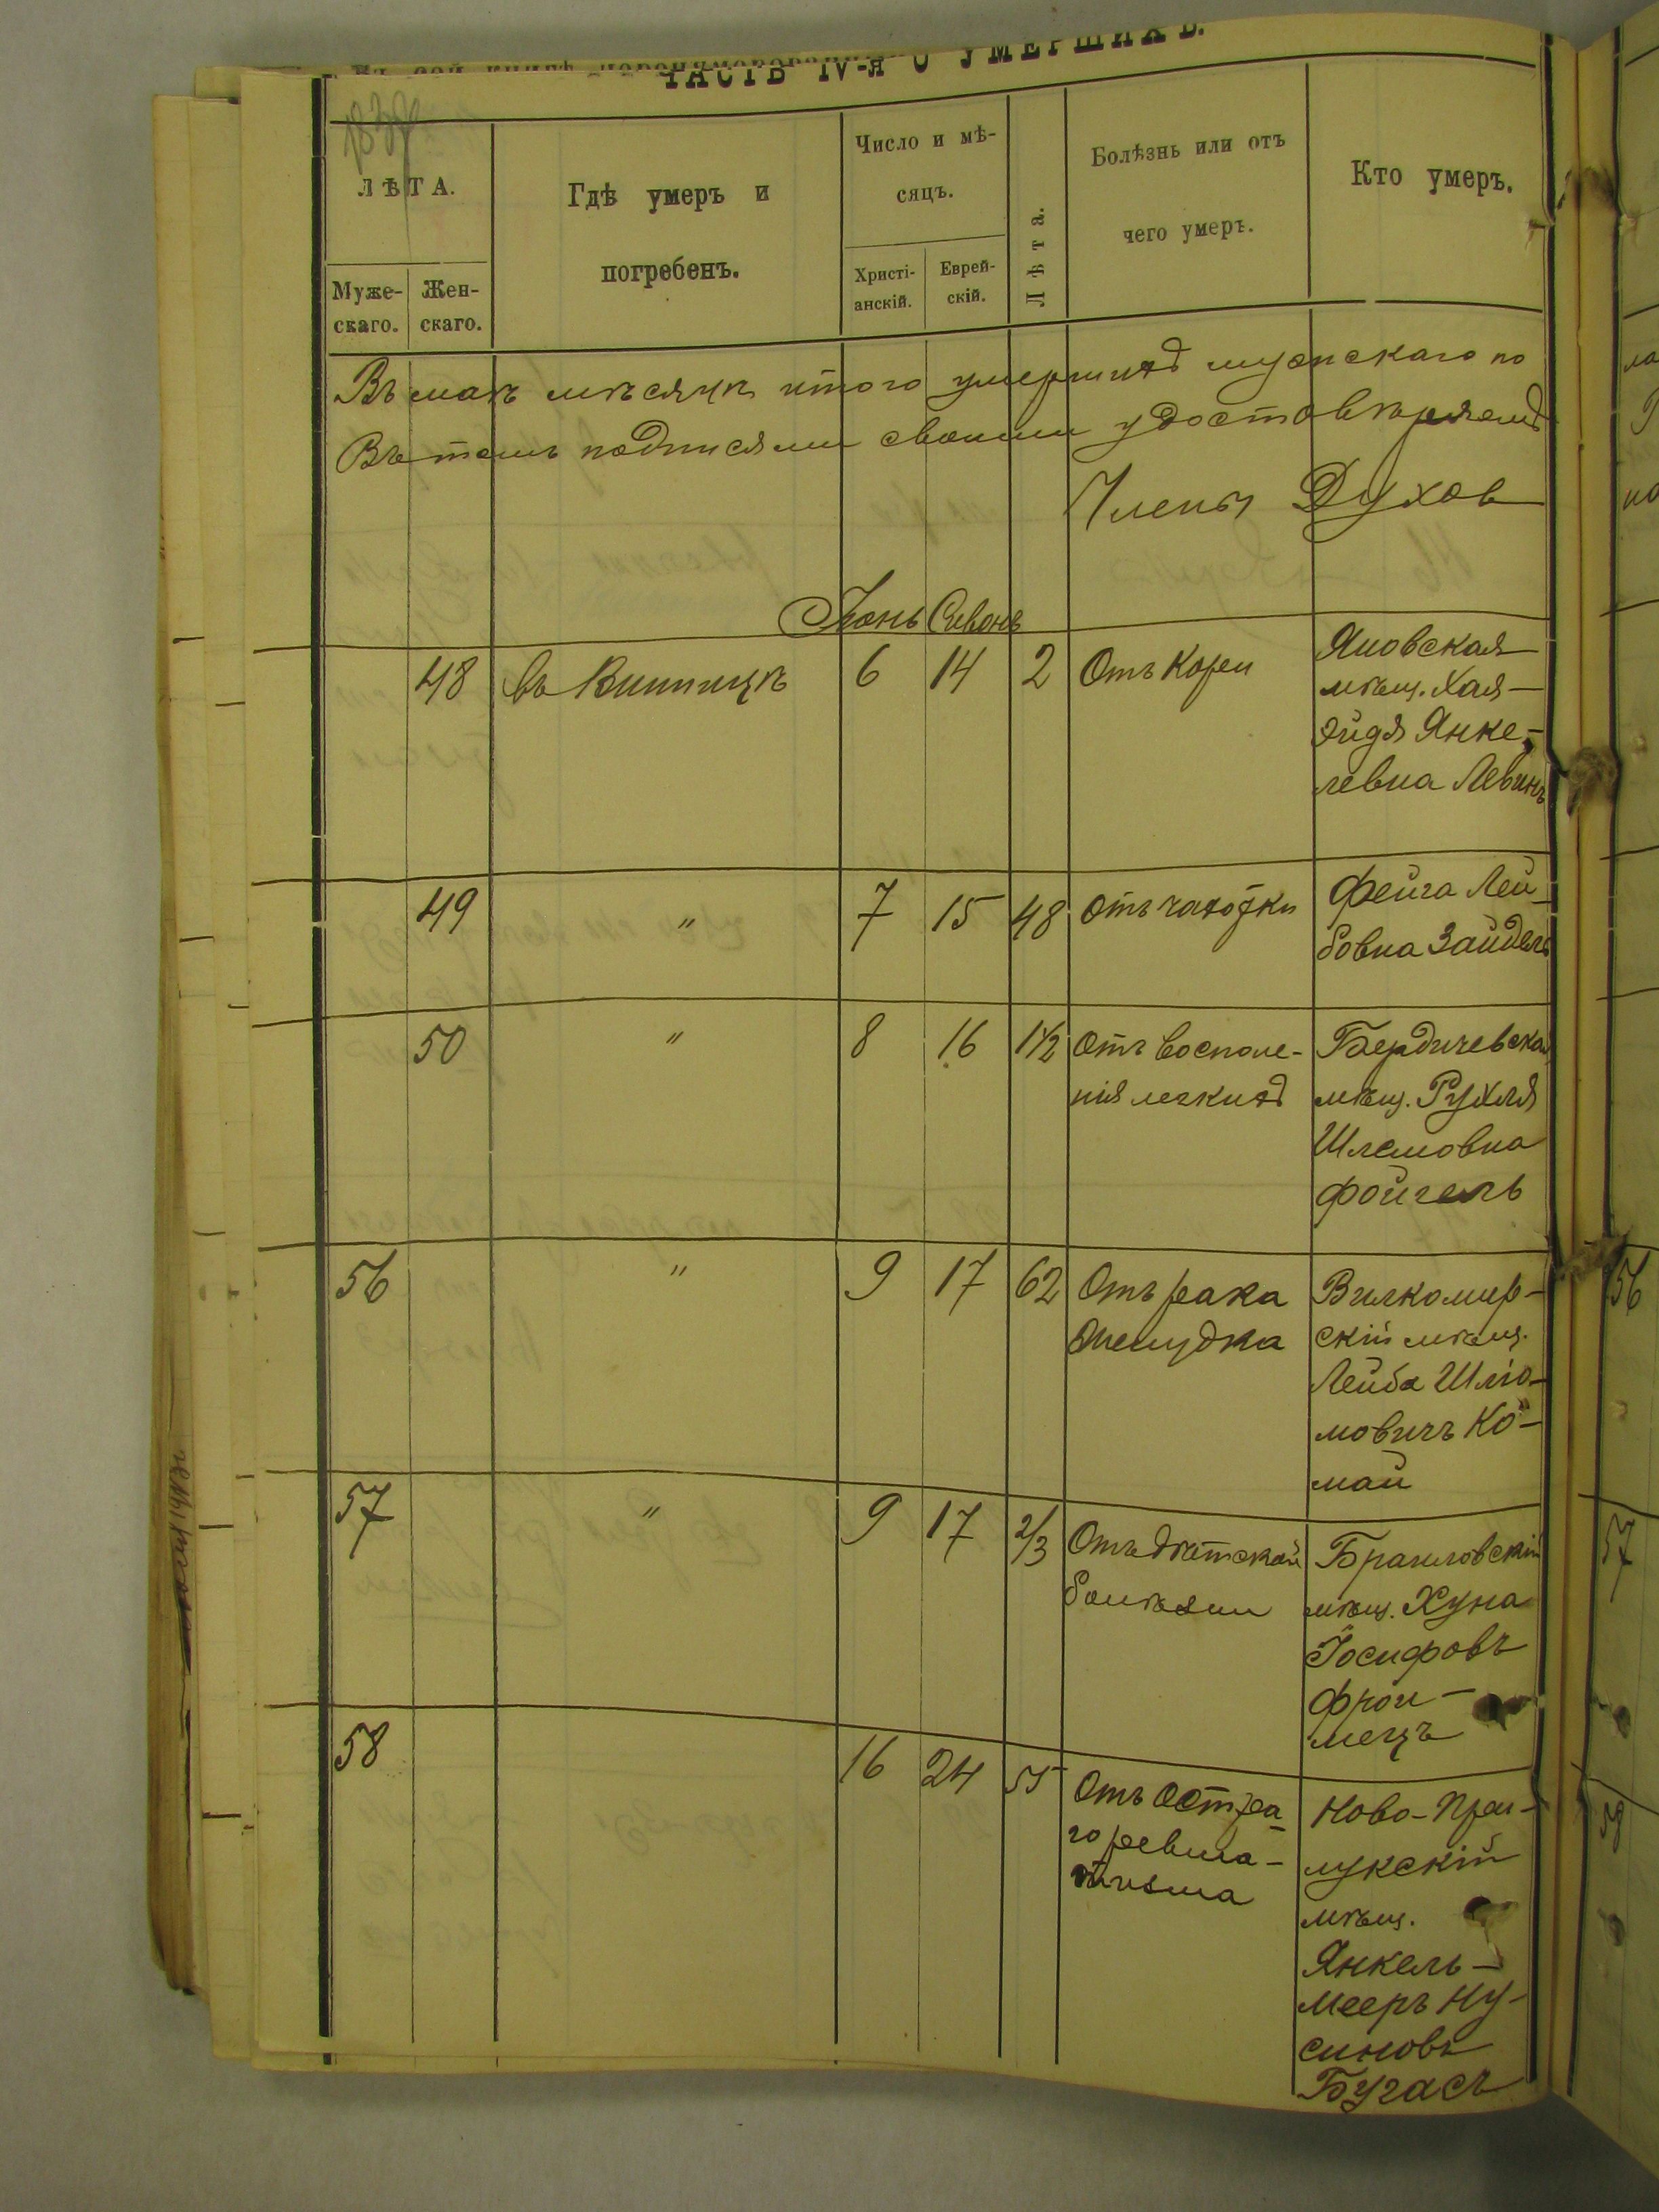 ЧАСТЬ IV-я О УМЕРШИХЪ.
ЛѢТА.
Муже-
скаго.
Жен-
скаго.
Гдѣ умеръ и
погребенъ.
Число и мѣ-
сяцъ.
Христі-
анскій.
Еврей-
скій.
Лѣта.
Болѣзнь или отъ
чего умеръ.
Кто умеръ.
Въ маѣ мѣсяцѣ итого умершихъ мужскаго по
Въ томъ подписями своими удостовѣряемъ
Члены Духов
Іюнь Сивонъ
48 въ Винницѣ 6 14 2 Отъ Кори
Яновская
мѣщ. Хая-
Эйдя Янке-
левна Левинъ
49 " 7 15 48 Отъ чахотки
Фейга Лей-
бовна Зайдель
50 " 8 16 1½ Отъ воспале-
нія легкихъ
Бердичевская
мѣщ. Рухля
Шлемовна
Фойгель
56 " 9 17 62 Отъ рака
желудка
Вилкомир-
скій мѣщ.
Лейба Шліо-
мовичъ Ко-
май
57 " 9 17 2/3 Отъ дѣтской
болѣзни
Браиловскій
мѣщ. Хуна
Іосифовъ
Фрои-
мецъ
58 16 24 55 Отъ остра
го ревма-
тизма
Ново-При-
лукскій
мѣщ.
Янкель-
Мееръ Ну-
синовъ
Бугасъ
56
57
58